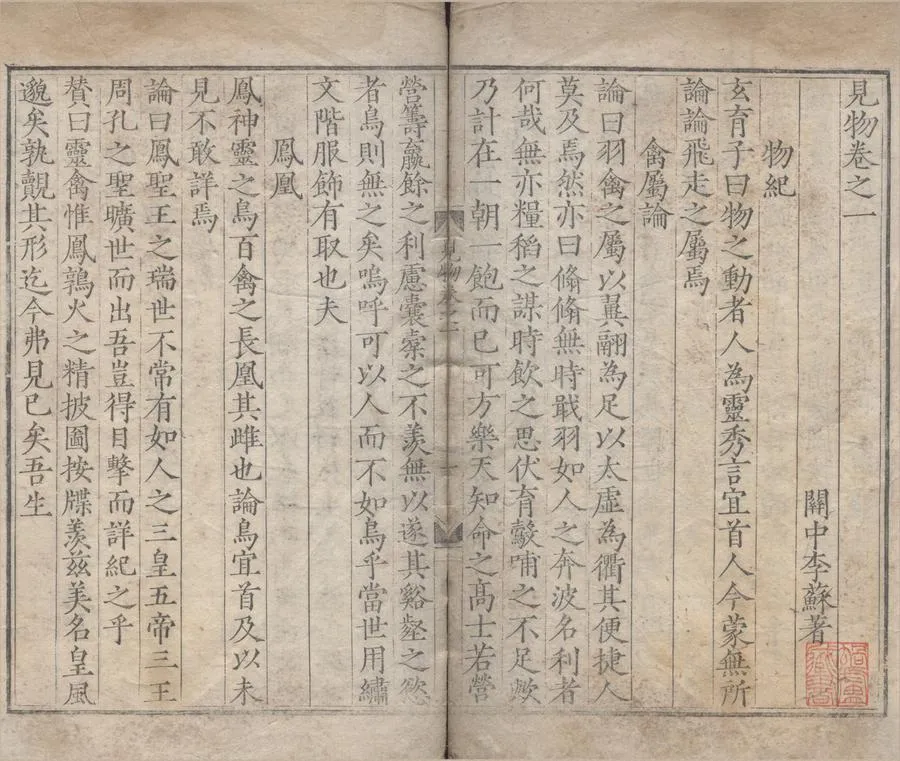 見物卷之一
關中李蘇著
物紀
玄育子曰物之動者人為靈秀言宜首人今蒙無所
論論飛走之屬焉
禽屬論
論曰羽禽之屬以翼翮為足以太虛為衢其便捷人
莫及焉然亦曰翛翛無時戢羽如人之奔波名利者
何哉無亦糧稻之謀時飲之思伏育鷇哺之不足歟
乃計在一朝一飽而已可方樂天知命之高士若營
見物卷之一
一
營籌贏餘之利慮囊橐之不羨無以遂其谿壑之慾
者鳥則無之矣嗚呼可以人而不如鳥乎當世用繡
文階服飾有取也夫
鳳凰
鳳神靈之鳥百禽之長凰其雌也論鳥宜首及以未
見不敢詳焉
論曰鳳聖王之瑞世不常有如人之三皇五帝三王
周孔之聖曠世而出吾豈得目擊而詳紀之乎
賛曰靈禽惟鳳鶉火之精披圖按牒羨兹美名皇風
邈矣孰覿其形迄今弗見已矣吾生